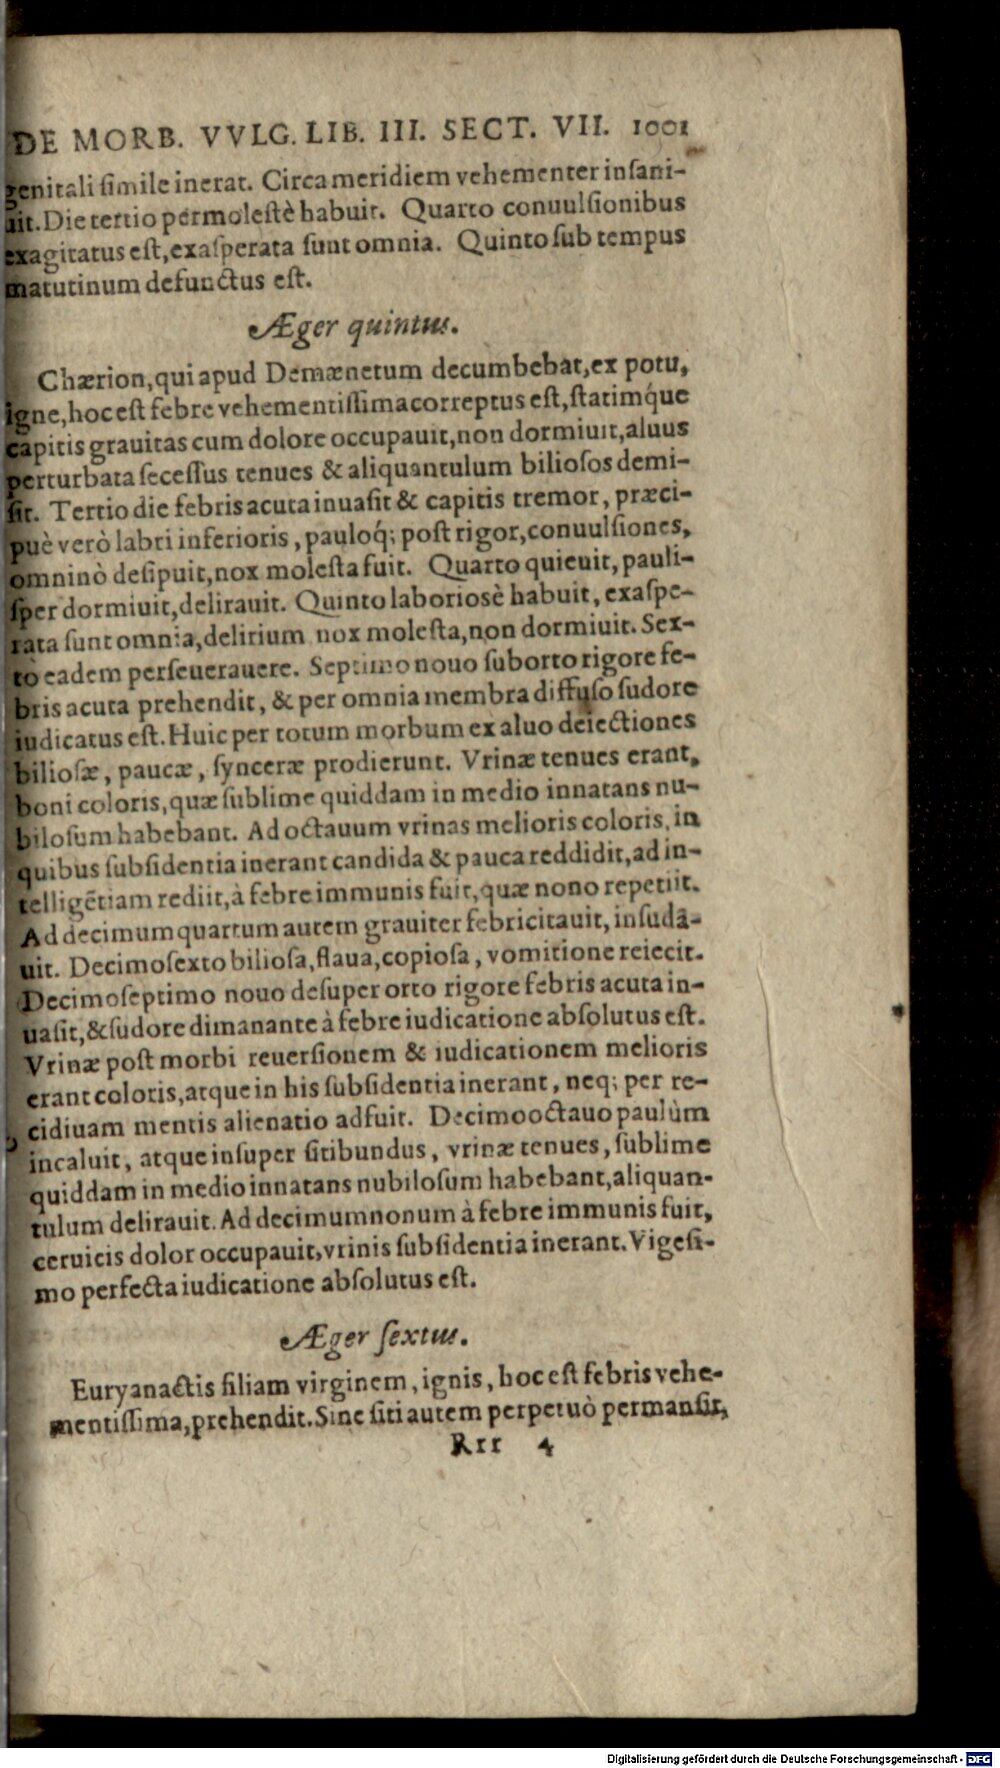 DE MORB. VVLG. LIB. III. SECT. VII. 1001
genitali simile inerat. Circa meridiem vehementer insani-
uit. Die tertio permolestè habuit. Quarto conuulsionibus
exagitatus est, exasperata sunt omnia. Quinto sub tempus
matutinum defunctus est.
Æger quintus.
Chærion, qui apud Demænetum decumbebat, ex potu,
igne, hoc est febre vehementissima correptus est, statimq́ue
capitis grauitas cum dolore occupauit, non dormiuit, aluus
perturbata secessus tenues & aliquantulum biliosos demi-
sit. Tertio die febris acuta inuasit & capitis tremor, præci-
puè verò labri inferioris, pauloq́; post rigor, conuulsiones,
omninò desipuit, nox molesta fuit. Quarto quieuit, pauli-
sper dormiuit, delirauit. Quinto laboriosè habuit, exaspe-
rata sunt omnia, delirium nox molesta, non dormiuit. Sex-
tò eadem perseuerauere. Septimo nouo suborto rigore fe-
bris acuta prehendit, & per omnia membra diffuso sudore
iudicatus est. Huic per totum morbum ex aluo deiectiones
biliosæ, paucæ, synceræ prodierunt. Vrinæ tenues erant,
boni coloris, quæ sublime quiddam in medio innatans nu-
bilosum habebant. Ad octauum vrinas melioris coloris, in
quibus subsidentia inerant candida & pauca reddidit, ad in-
telligẽtiam rediit, à febre immunis fuit, quæ nono repetiit.
Ad decimum quartum autem grauiter febricitauit, insudā-
uit. Decimosexto biliosa, flaua, copiosa, vomitione reiecit.
Decimoseptimo nouo desuper orto rigore febris acuta in-
uasit, & sudore dimanante à febre iudicatione absolutus est.
Vrinæ post morbi reuersionem & iudicationem melioris
erant coloris, atque in his subsidentia inerant, neq; per re-
cidiuam mentis alienatio adfuit. Decimooctauo paulùm
incaluit, atque insuper sitibundus, vrinæ tenues, sublime
quiddam in medio innatans nubilosum habebant, aliquan-
tulum delirauit. Ad decimumnonum à febre immunis fuit,
ceruicis dolor occupauit, vrinis subsidentia inerant. Vigesi-
mo perfecta iudicatione absolutus est.
Æger sextus.
Euryanactis filiam virginem, ignis, hoc est febris vehe-
mentissima, prehendit. Sine siti autem perpetuò permansit,
Rrr 4
Digitalisierung gefördert durch die Deutsche Forschungsgemeinschaft - DFG